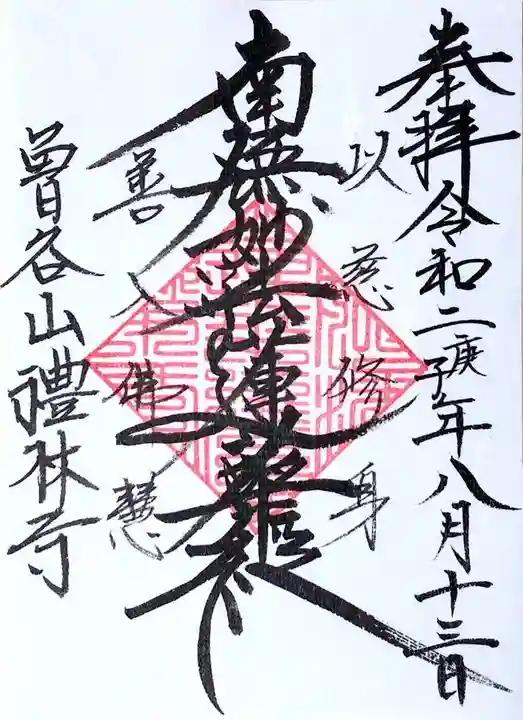 奉拝令和二庚子年八月十三日
以慈修身
南無妙法蓮華経
善入佛慧
曽谷山禮林寺